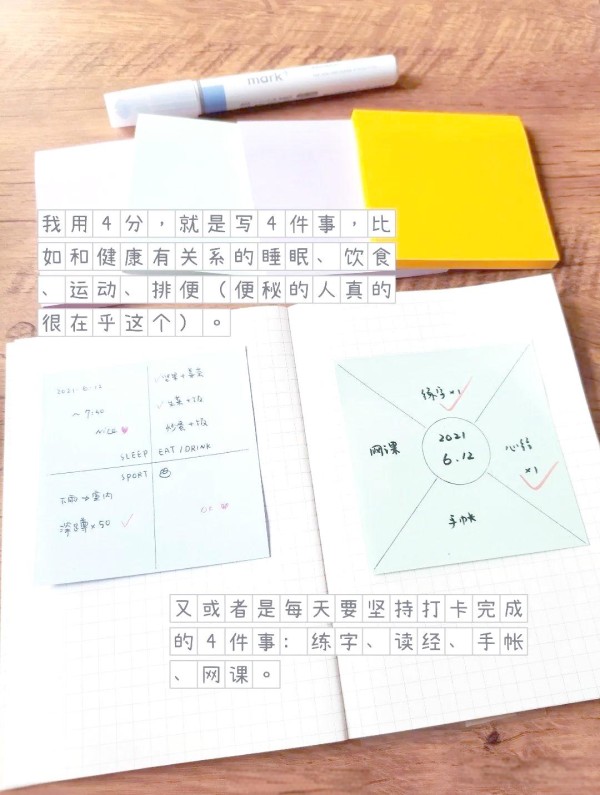 mark+
我用4分，就是写4件事，比
如和健康有关系的睡眠、饮食
、运动、排便（便秘的人真的
很在乎这个）。
2021.6.12
~ 7:40
Nice
SLEEP
EAT/DRINK
SPORT
下雨 室内
深蹲×50
OK
练字×1
网课
2021
6.12
心经
×1
手帐
又或者是每天要坚持打卡完成
的4件事：练字、读经、手帐
、网课。